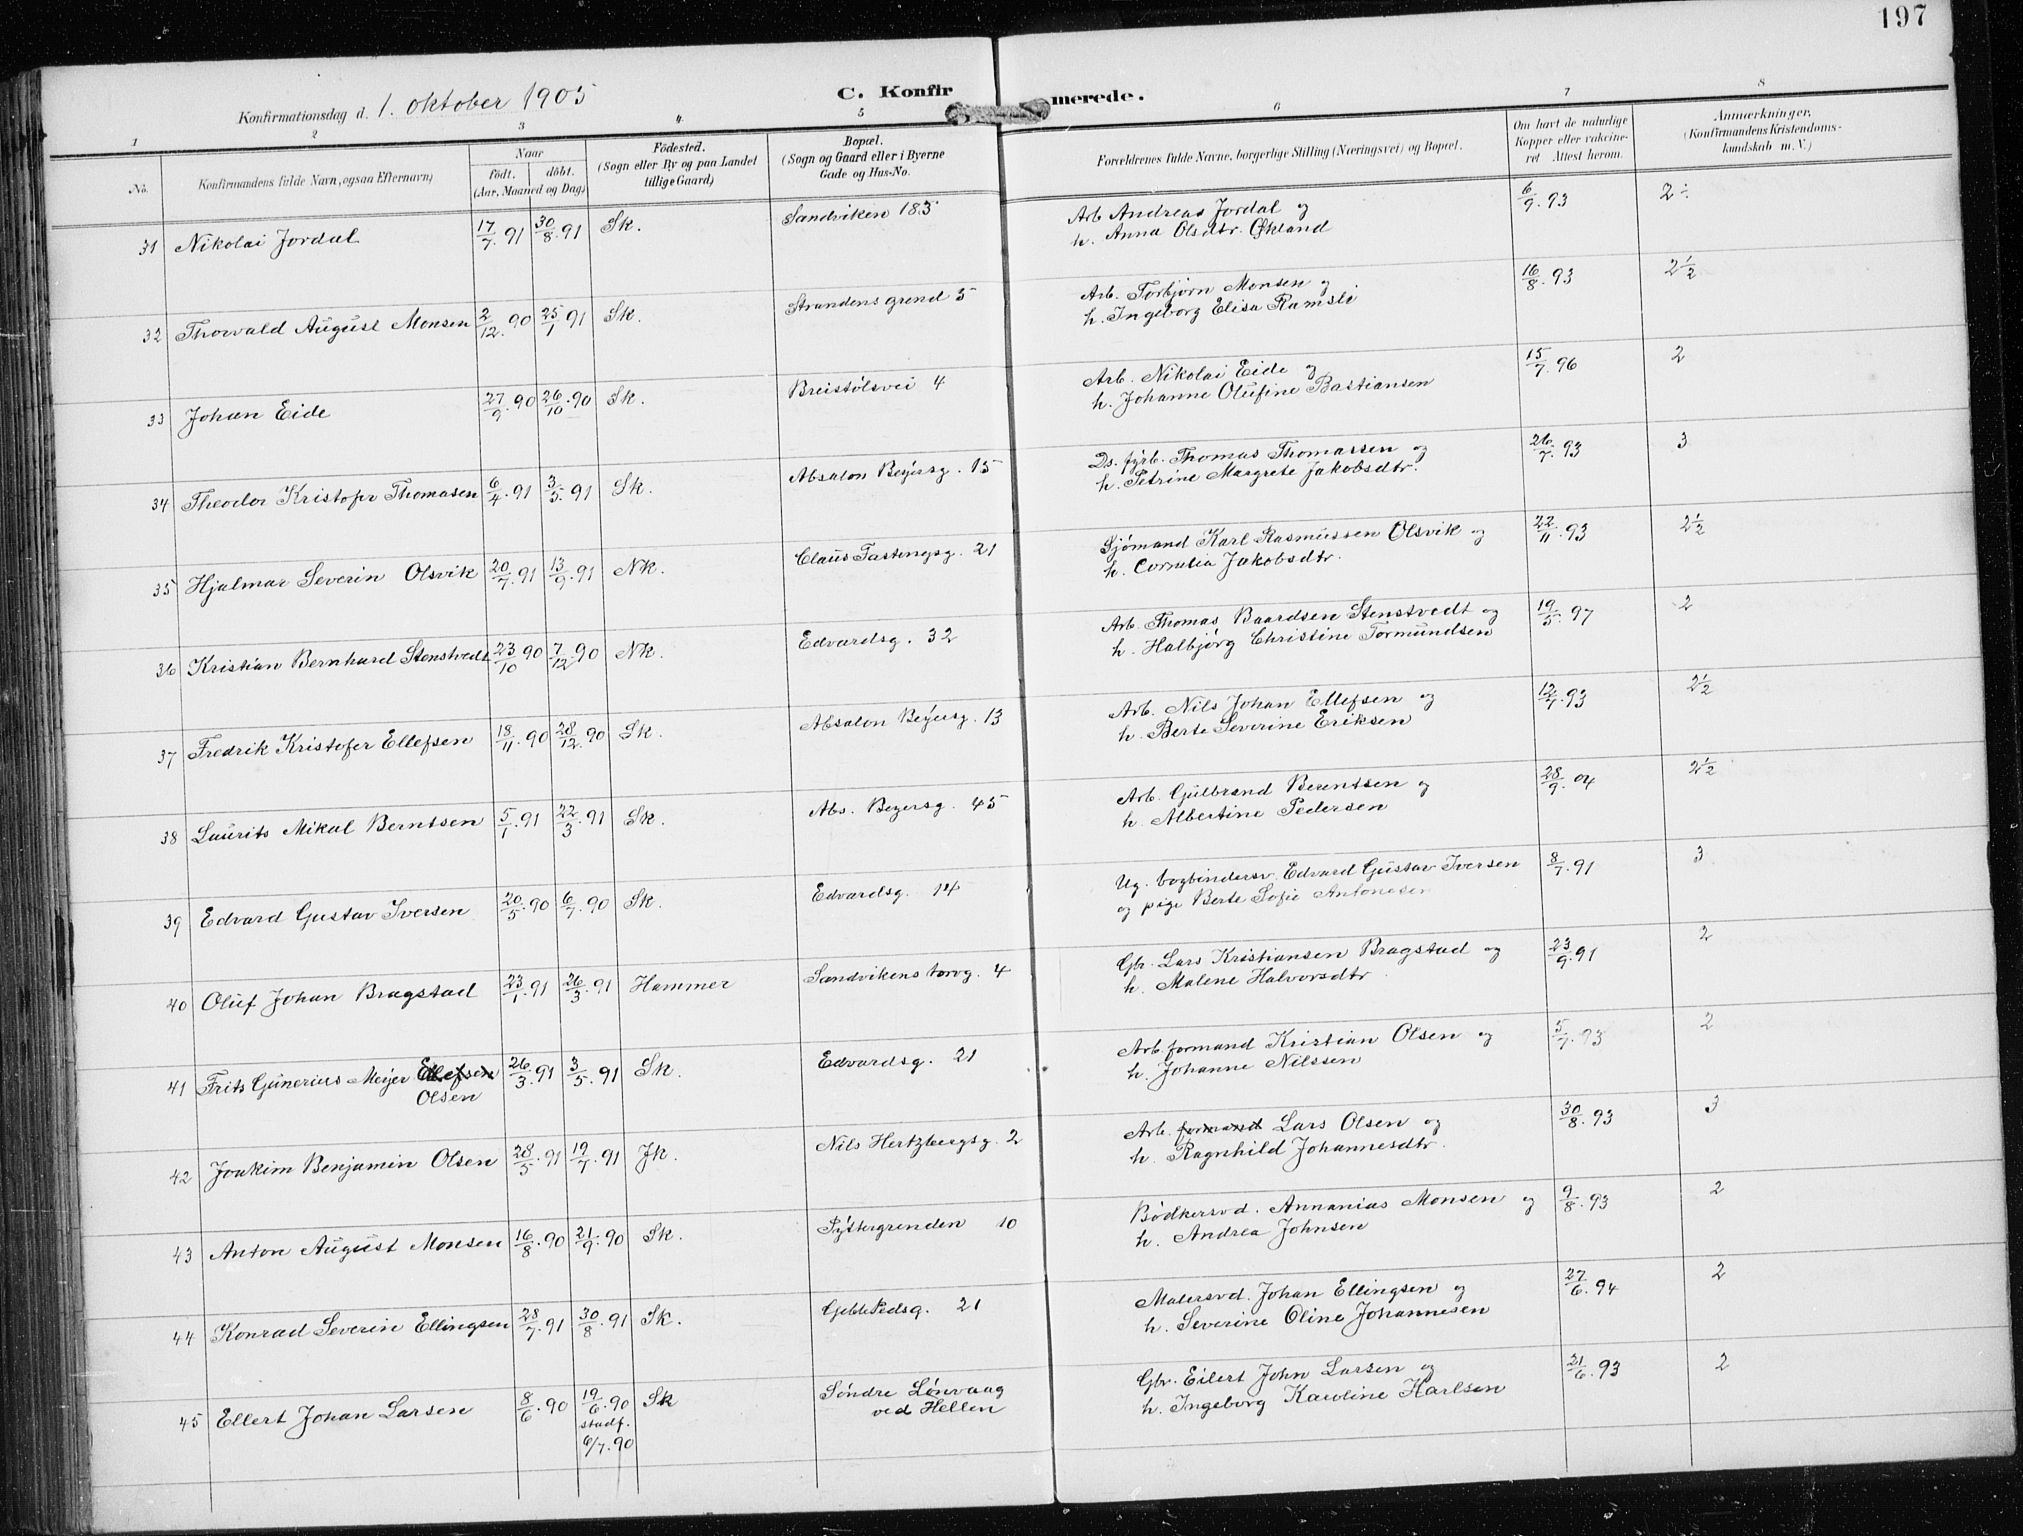 197
Konfirmationsdag d. 1. oktober 1905
C. Konfirmerede.
1 2 3 4. 5 6 7 8
No. Konfirmandens fulde Navn, ogsaa Efternavn) Naar födt. döbt. (Aar, Maaned og Dag) Födested. (Sogn eller By og paa Landet tillige Gaard) Bopæl. (Sogn og Gaard eller i Byerne Gade og Hus-No. Forældrenes fulde Navne, borgerlige Stilling (Næringsvei) og Bopæl. Om havt de naturlige Kopper eller vakcineret Attest herom. Anmærkninger, (Konfirmandens Kristendomskundskab m. V.)
31 Nikolai Jordal 17/7. 91 30/8. 91 Sk. Sandviken 183 Arb Andreas Jordal og 6/9. 93 2÷
h. Anna Olsdtr. Økland
32 Thorvald August Monsen 2/12. 90 25/1 91 Sk. Strandens grend 5 Arb. Torbjørn Monsen og 16/8. 93 2½
h. Ingeborg Elisa Ramsli
33 Johan Eide 27/9. 90 26/10. 90 Sk. Breistølsvei 4 Arb. Nikolai Eide og 15/7. 96 2
h. Johanne Olufine Bastiansen
34 Theodor Kristofer Thomasen 6/4. 91 3/5. 91 Sk. Absalon Beyersg. 15 Ds. fyrb. Thomas Thomassen og 26/7. 93 3
h. Petrine Margrete Jakobsdtr.
35 Hjalmar Severin Olsvik 20/7. 91 13/9. 91 Nk. Claus Fastingsg. 21 Sjømand Karl Rasmussen Olsvik og 22/11. 93 2½
h. Cornelia Jakobsdtr.
36 Kristian Bernhard Stenstvedt 23/10 90 7/12. 90 Nk. Edvardsg. 32 Arb. Thomas Baardsen Stenstvedt og 19/5. 97 2
h. Halbjørg Christine Tormundsen
37 Fredrik Kristofer Ellefsen 18/11. 90 28/12. 90 Sk. Absalon Beyersg. 13 Arb. Nils Johan Ellefsen og 12/7. 93 2½
h. Berte Severine Eriksen
38 Laurits Mikal Berntsen 5/1. 91 22/3. 91 Sk. Abs. Beyersg. 45 Arb. Gulbrand Berentsen og 28/9. 04 2½
h. Albertine Pedersen
39 Edvard Gustav Iversen 20/5. 90 6/7. 90 Sk. Edvardsg. 14 Ug. bogbindersv. Edvard Gustav Iversen 8/7. 91 3
og pige Berte Sofie Antonesen
40 Oluf Johan Bragstad 23/1. 91 26/3. 91 Hammer Sandvikens torvg. 4 Gbr. Lars Kristiansen Bragstad og 23/9. 91 2
h. Malene Halvorsdtr.
41 Frits Gunerius Meyer Ellefsen 26/3. 91 3/5. 91 Sk. Edvardsg. 21 Arb. formand Kristian Olsen og 5/7. 93 2
Olsen h. Johanne Nilssen
42 Joakim Benjamin Olsen 28/5. 91 19/7. 91 Jk. Nils Hertzbergsg. 2 Arb. formand Lars Olsen og 30/8. 93 3
h. Ragnhild Johannesdtr.
43 Anton August Monsen 16/8. 90 21/9. 90 Sk. Pyttergrenden 10 Bødkersvd. Annanias Monsen og 9/8. 93 2
h. Andrea Johnsen
44 Konrad Severin Ellingsen 28/7. 91 30/8. 91 Sk. Geble Pedsg. 21 Malersvd. Johan Ellingsen og 27/6. 94 2
h. Severine Oline Johannesen
45 Ellert Johan Larsen 8/6. 90 19/6. 90 Sk Söndre Lönvaag Gbr. Eilert John Larsen og 21/6. 93 2
stadf. 6/7. 90 ved Hellen h. Ingeborg Karoline Karlsen